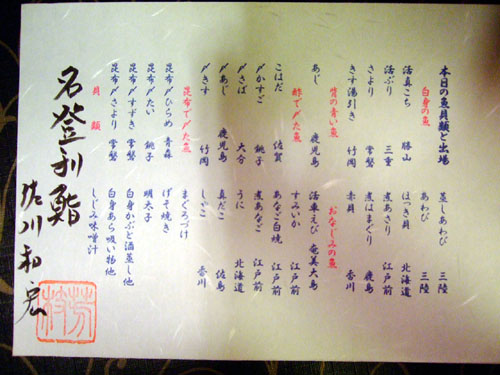 本日の魚貝類と出場
白身の魚
活真こち 勝山
活ぶり 三重
さより 常磐
きす湯引き 竹岡
背の青い魚
あじ 鹿児島
酢で〆た魚
こはだ 佐賀
〆かすご 銚子
〆さば 大分
〆あじ 鹿児島
〆きす 竹岡
昆布で〆た魚
昆布〆ひらめ 青森
昆布〆たい 銚子
昆布〆すずき 常磐
昆布〆さより 常磐
貝類
蒸しあわび 三陸
あわび 三陸
ほつき貝 北海道
煮あさり 江戸前
煮はまぐり 鹿島
赤貝 香川
おなじみの魚
活車えび 奄美大島
すみいか 江戸前
あなご白焼 江戸前
煮あなご 江戸前
うに 北海道
真だこ 佐島
しゃこ 香川
まぐろづけ
げそ焼き
明太子
白身かぶと酒蒸し他
白身あら吸い物他
しじみ味噌汁
名登利鮨
佐川和宏